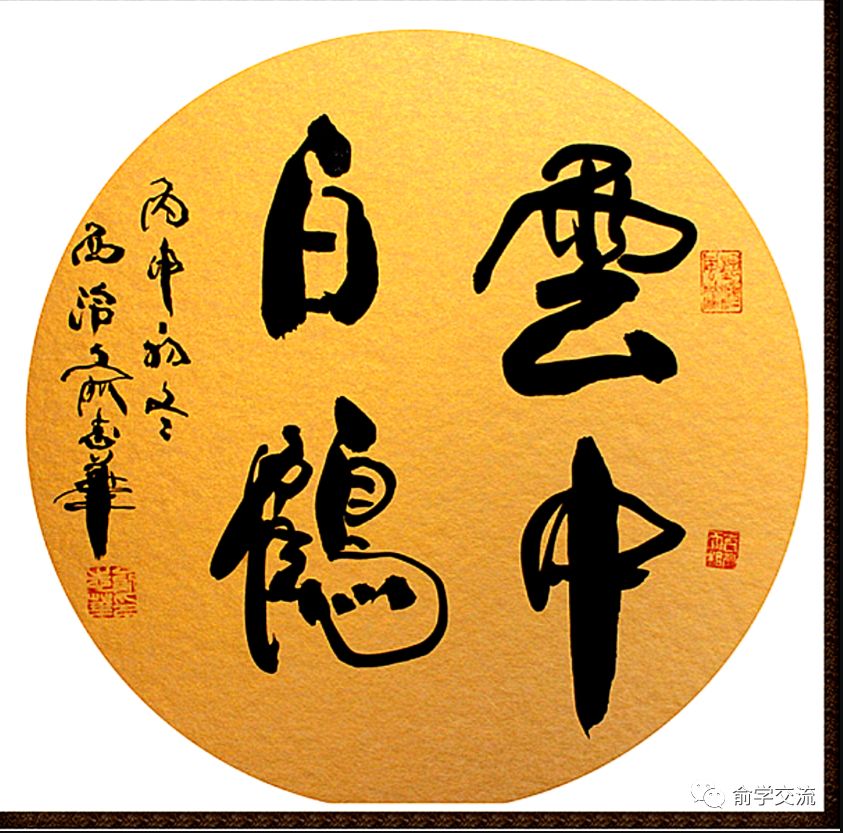 雲中
白鶴
丙申初冬
西泠俞志華
俞学交流